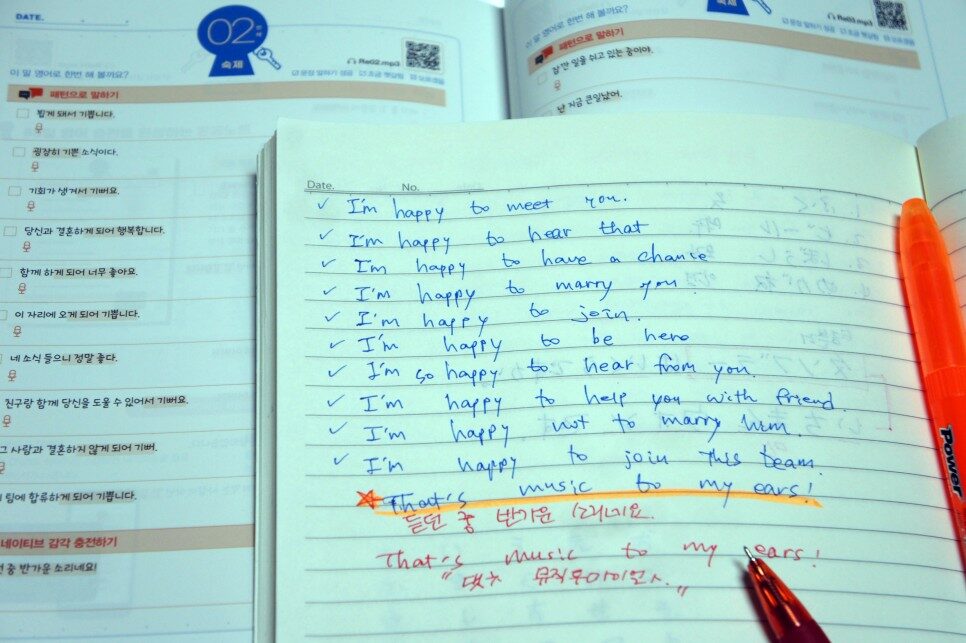 DATE.
02 번째
숙제
Re02.mp3
이 말 영어로 한번 해 볼까요?
문장 말하기 점검
패턴으로 말하기
뵙게 돼서 기쁩니다.
굉장히 기쁜 소식이다.
기회가 생겨서 기뻐요.
당신과 결혼하게 되어 행복합니다.
함께 하게 되어 너무 좋아요.
이 자리에 오게 되어 기쁩니다.
네 소식 들으니 정말 좋다.
친구랑 함께 당신을 도울 수 있어서 기뻐요.
그 사람과 결혼하지 않게 되어 기뻐.
팀에 합류하게 되어 기쁩니다.
네이티브 감각 충전하기
중 반가운 소리네요!
숙제
Re03.mp3
이 말 영어로 한번 해 볼까요?
패턴으로 말하기
잠깐 일을 쉬고 있는 중이야.
난 지금 큰일났어.
Date. No.
✓ I'm happy to meet you.
✓ I'm happy to hear that
✓ I'm happy to have a chance
✓ I'm happy to marry you.
✓ I'm happy to join.
✓ I'm happy to be here
✓ I'm so happy to hear from you.
✓ I'm happy to help you with friend.
✓ I'm happy not to marry him.
✓ I'm happy to join this team.
That's music to my ears!
듣던 중 반가운
That's music to my ears!
Power